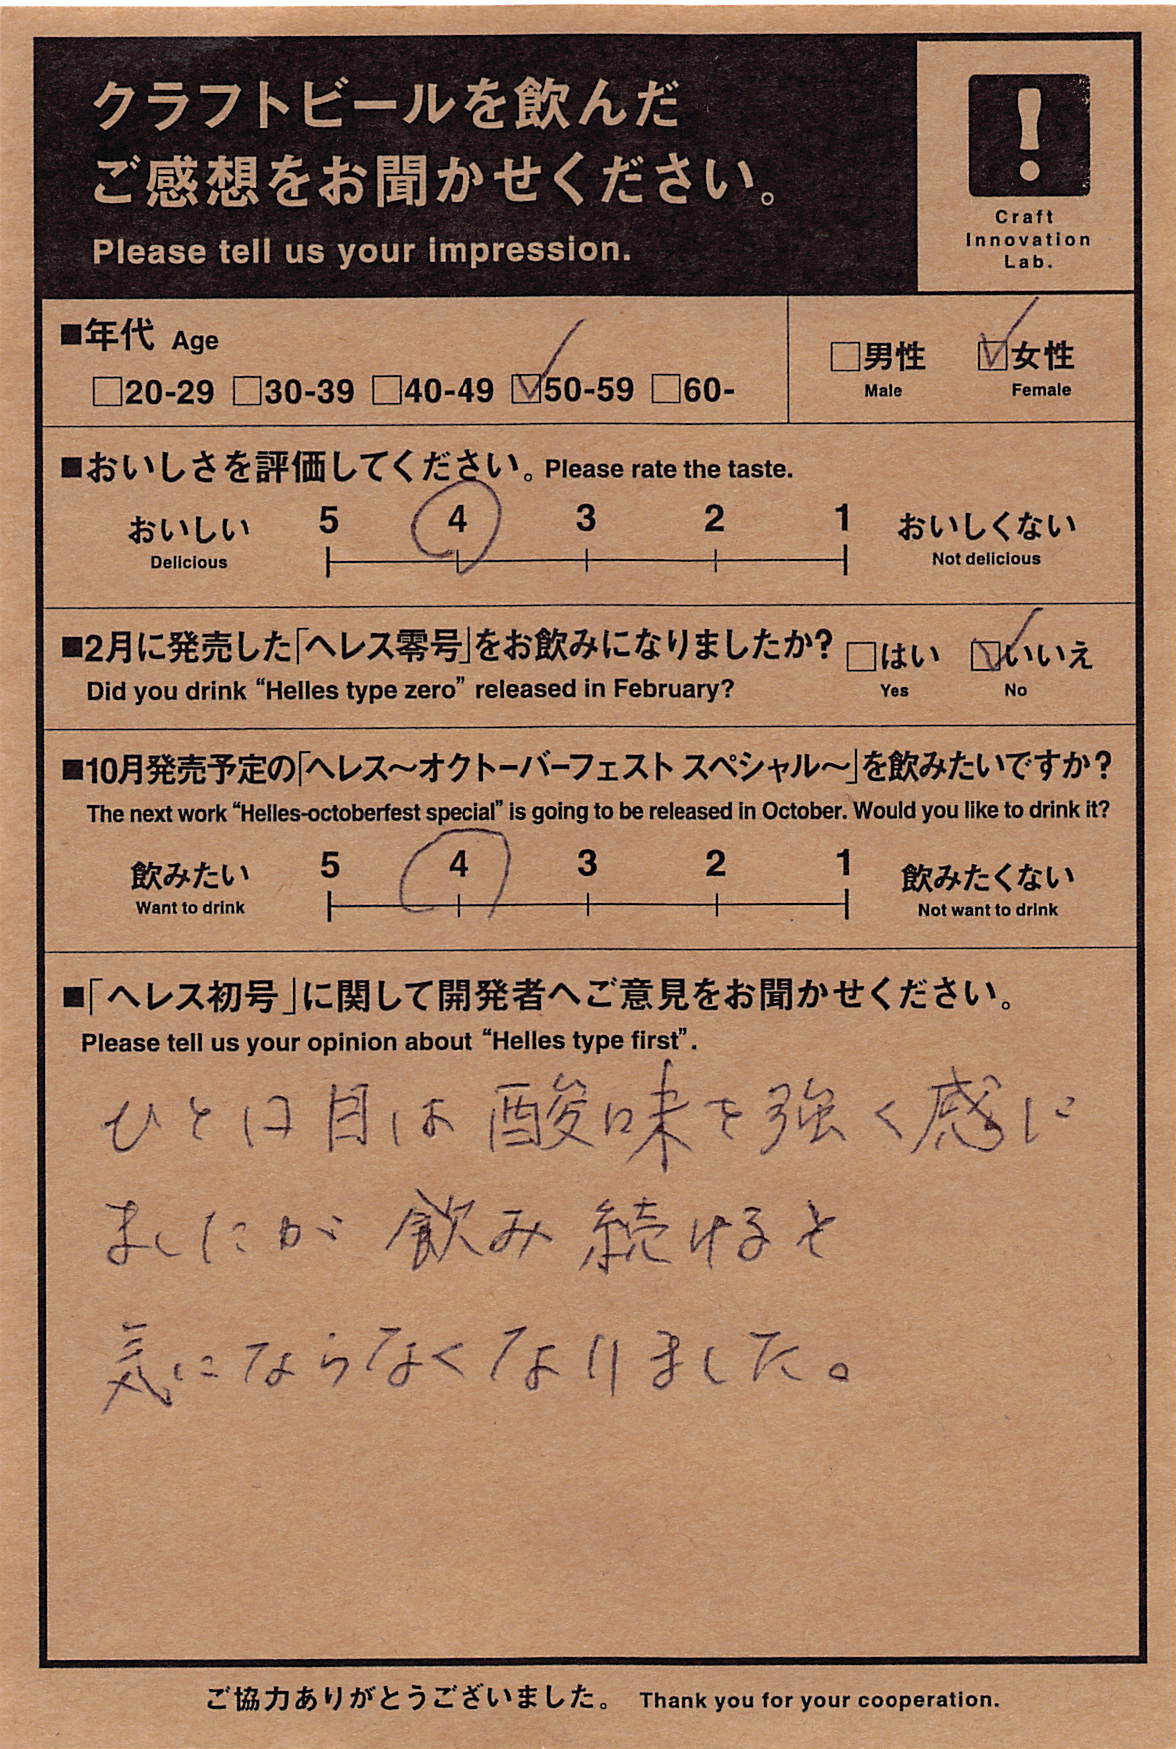 クラフトビールを飲んだ
ご感想をお聞かせください。
Please tell us your impression.
!
Craft
Innovation
Lab.
■年代 Age
□20-29 □30-39 □40-49 ☑50-59 □60-
□男性 ☑女性
Male Female
■おいしさを評価してください。Please rate the taste.
おいしい 5 4 3 2 1 おいしくない
Delicious Not delicious
■2月に発売した「ヘレス零号」をお飲みになりましたか? □はい ☑いいえ
Did you drink “Helles type zero” released in February? Yes No
■10月発売予定の「ヘレス〜オクトーバーフェスト スペシャル〜」を飲みたいですか?
The next work “Helles-octoberfest special” is going to be released in October. Would you like to drink it?
飲みたい 5 4 3 2 1 飲みたくない
Want to drink Not want to drink
■「ヘレス初号」に関して開発者へご意見をお聞かせください。
Please tell us your opinion about “Helles type first”.
ひと口目は酸味を強く感じ
ましたが飲み続けると
気にならなくなりました。
ご協力ありがとうございました。 Thank you for your cooperation.